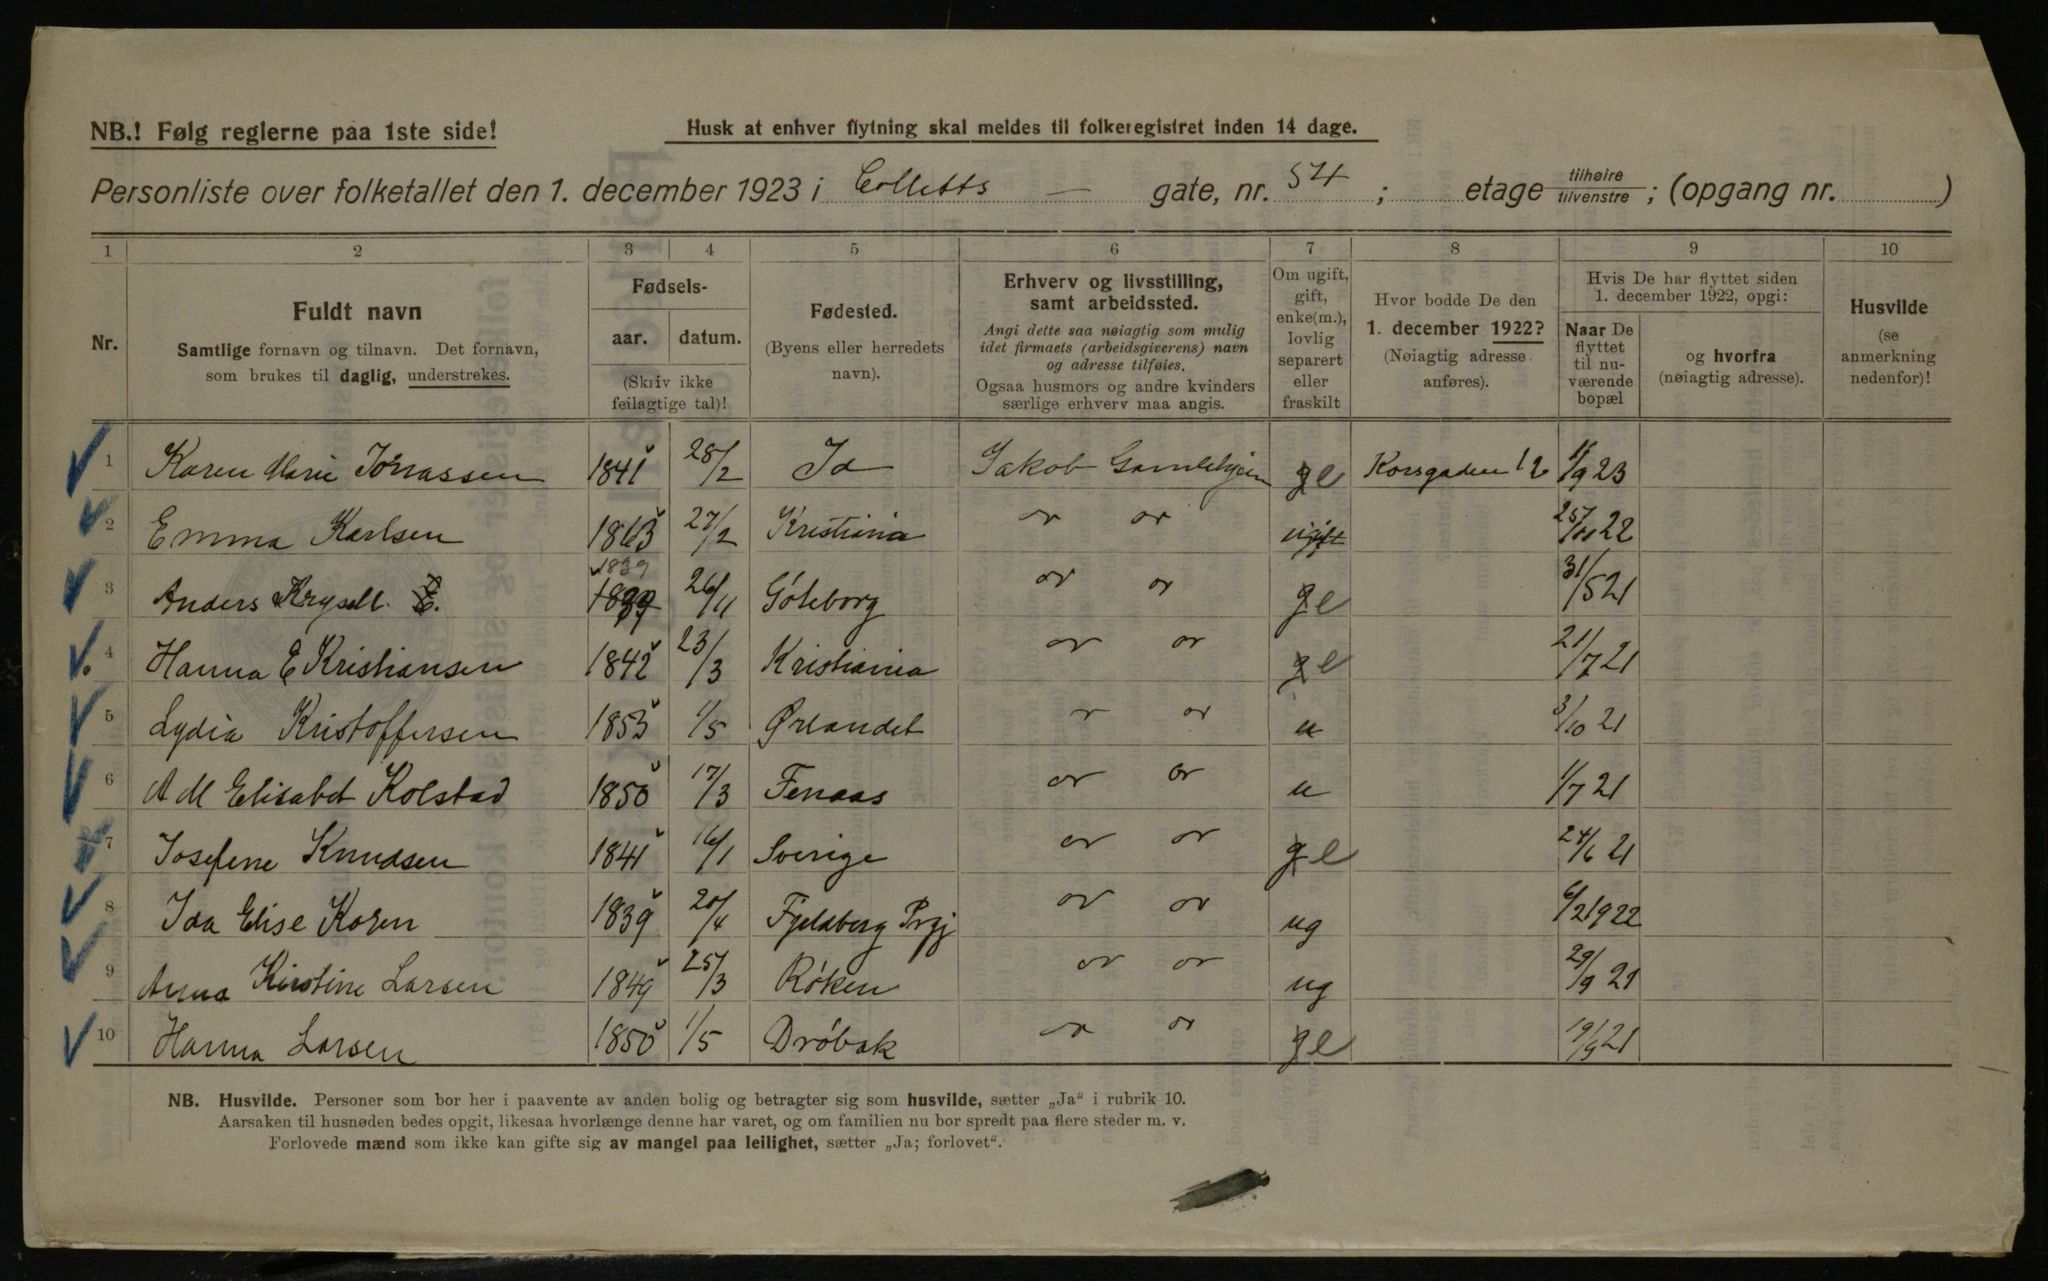 NB.! Følg reglerne paa 1ste side!
Husk at enhver flytning skal meldes til folkeregistret inden 14 dage.
Personliste over folketallet den 1. december 1923 i Colletts — gate, nr. 54; etage tilhøire/tilvenstre; (opgang nr. )
1 2 3 4 5 6 7 8 9 10
Nr.
Fuldt navn
Samtlige fornavn og tilnavn. Det fornavn,
som brukes til daglig, understrekes.
Fødsels-
aar. datum.
(Skriv ikke
feilagtige tal)!
Fødested.
(Byens eller herredets
navn).
Erhverv og livsstilling,
samt arbeidssted.
Angi dette saa nøiagtig som mulig
idet firmaets (arbeidsgiverens) navn
og adresse tilføies.
Ogsaa husmors og andre kvinders
særlige erhverv maa angis.
Om ugift,
gift,
enke(m.),
lovlig
separert
eller
fraskilt
Hvor bodde De den
1. december 1922?
(Nøiagtig adresse
anføres).
Hvis De har flyttet siden
1. december 1922, opgi:
Naar De
flyttet
til nu-
værende
bopæl
og hvorfra
(nøiagtig adresse).
Husvilde
(se
anmerkning
nedenfor)!
1 Karen Marie Jonassen 1841 28/2 Id Jakob Gamlehjem ge Korsgaden 12 1/9 23
2 Emma Karlsen 1863 27/2 Kristiania " " ugift 22
1839
3 Anders Krysell 1839 26/11 Göteborg " " ge 31/5 21
4 Hanna E Kristiansen 1842 23/3 Kristiania " " ge 21/7 21
5 Lydia Kristoffersen 1853 1/5 Ørlandet " " u 3/10 21
6 A M Elisabet Kolstad 1850 17/3 Fenaas " " u 1/7 21
7 Josefine Knudsen 1841 16/1 Sverige " " ge 24/6 21
8 Ida Elise Koren 1839 20/4 Fjeldberg Prgj " " ug 6/2 1922
9 Anna Kirstine Larsen 1849 25/3 Røken " " ug 29/9 21
10 Hanna Larsen 1850 1/5 Drøbak " " ge 19/9 21
NB. Husvilde. Personer som bor her i paavente av anden bolig og betragter sig som husvilde, sætter „Ja“ i rubrik 10.
Aarsaken til husnøden bedes opgit, likesaa hvorlænge denne har varet, og om familien nu bor spredt paa flere steder m. v.
Forlovede mænd som ikke kan gifte sig av mangel paa leilighet, sætter „Ja; forlovet“.